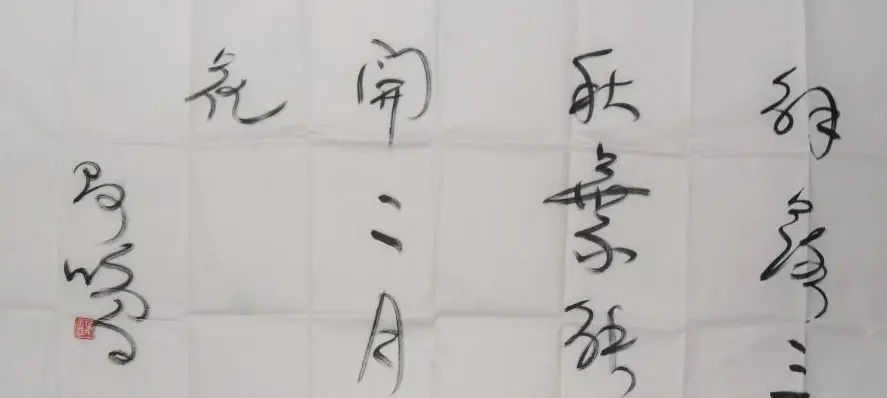 解落三
秋葉能
開二月
花